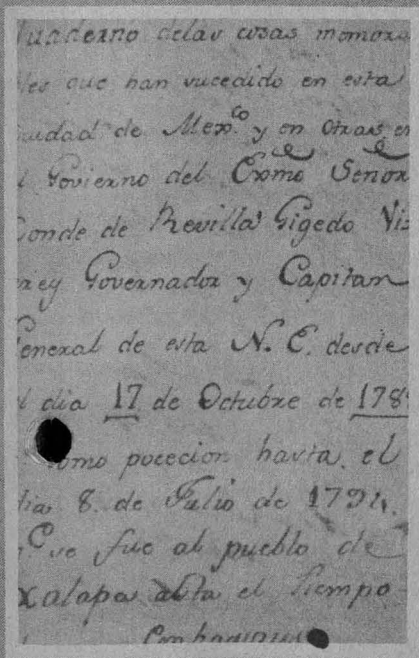 uaderno delas cosas memora
les que han sucedido en esta
iudad de Mex.co y en otras en
l Govierno del Exmo Señor
Conde de Revilla Gigedo Vi
rrey Governador y Capitan
General de esta N. E. desde
l dia 17 de Octubre de 178
tomo pocecion hasta el
dia 8 de Julio de 1794.
q.e se fue al pueblo de
xalapa asta el tiempo